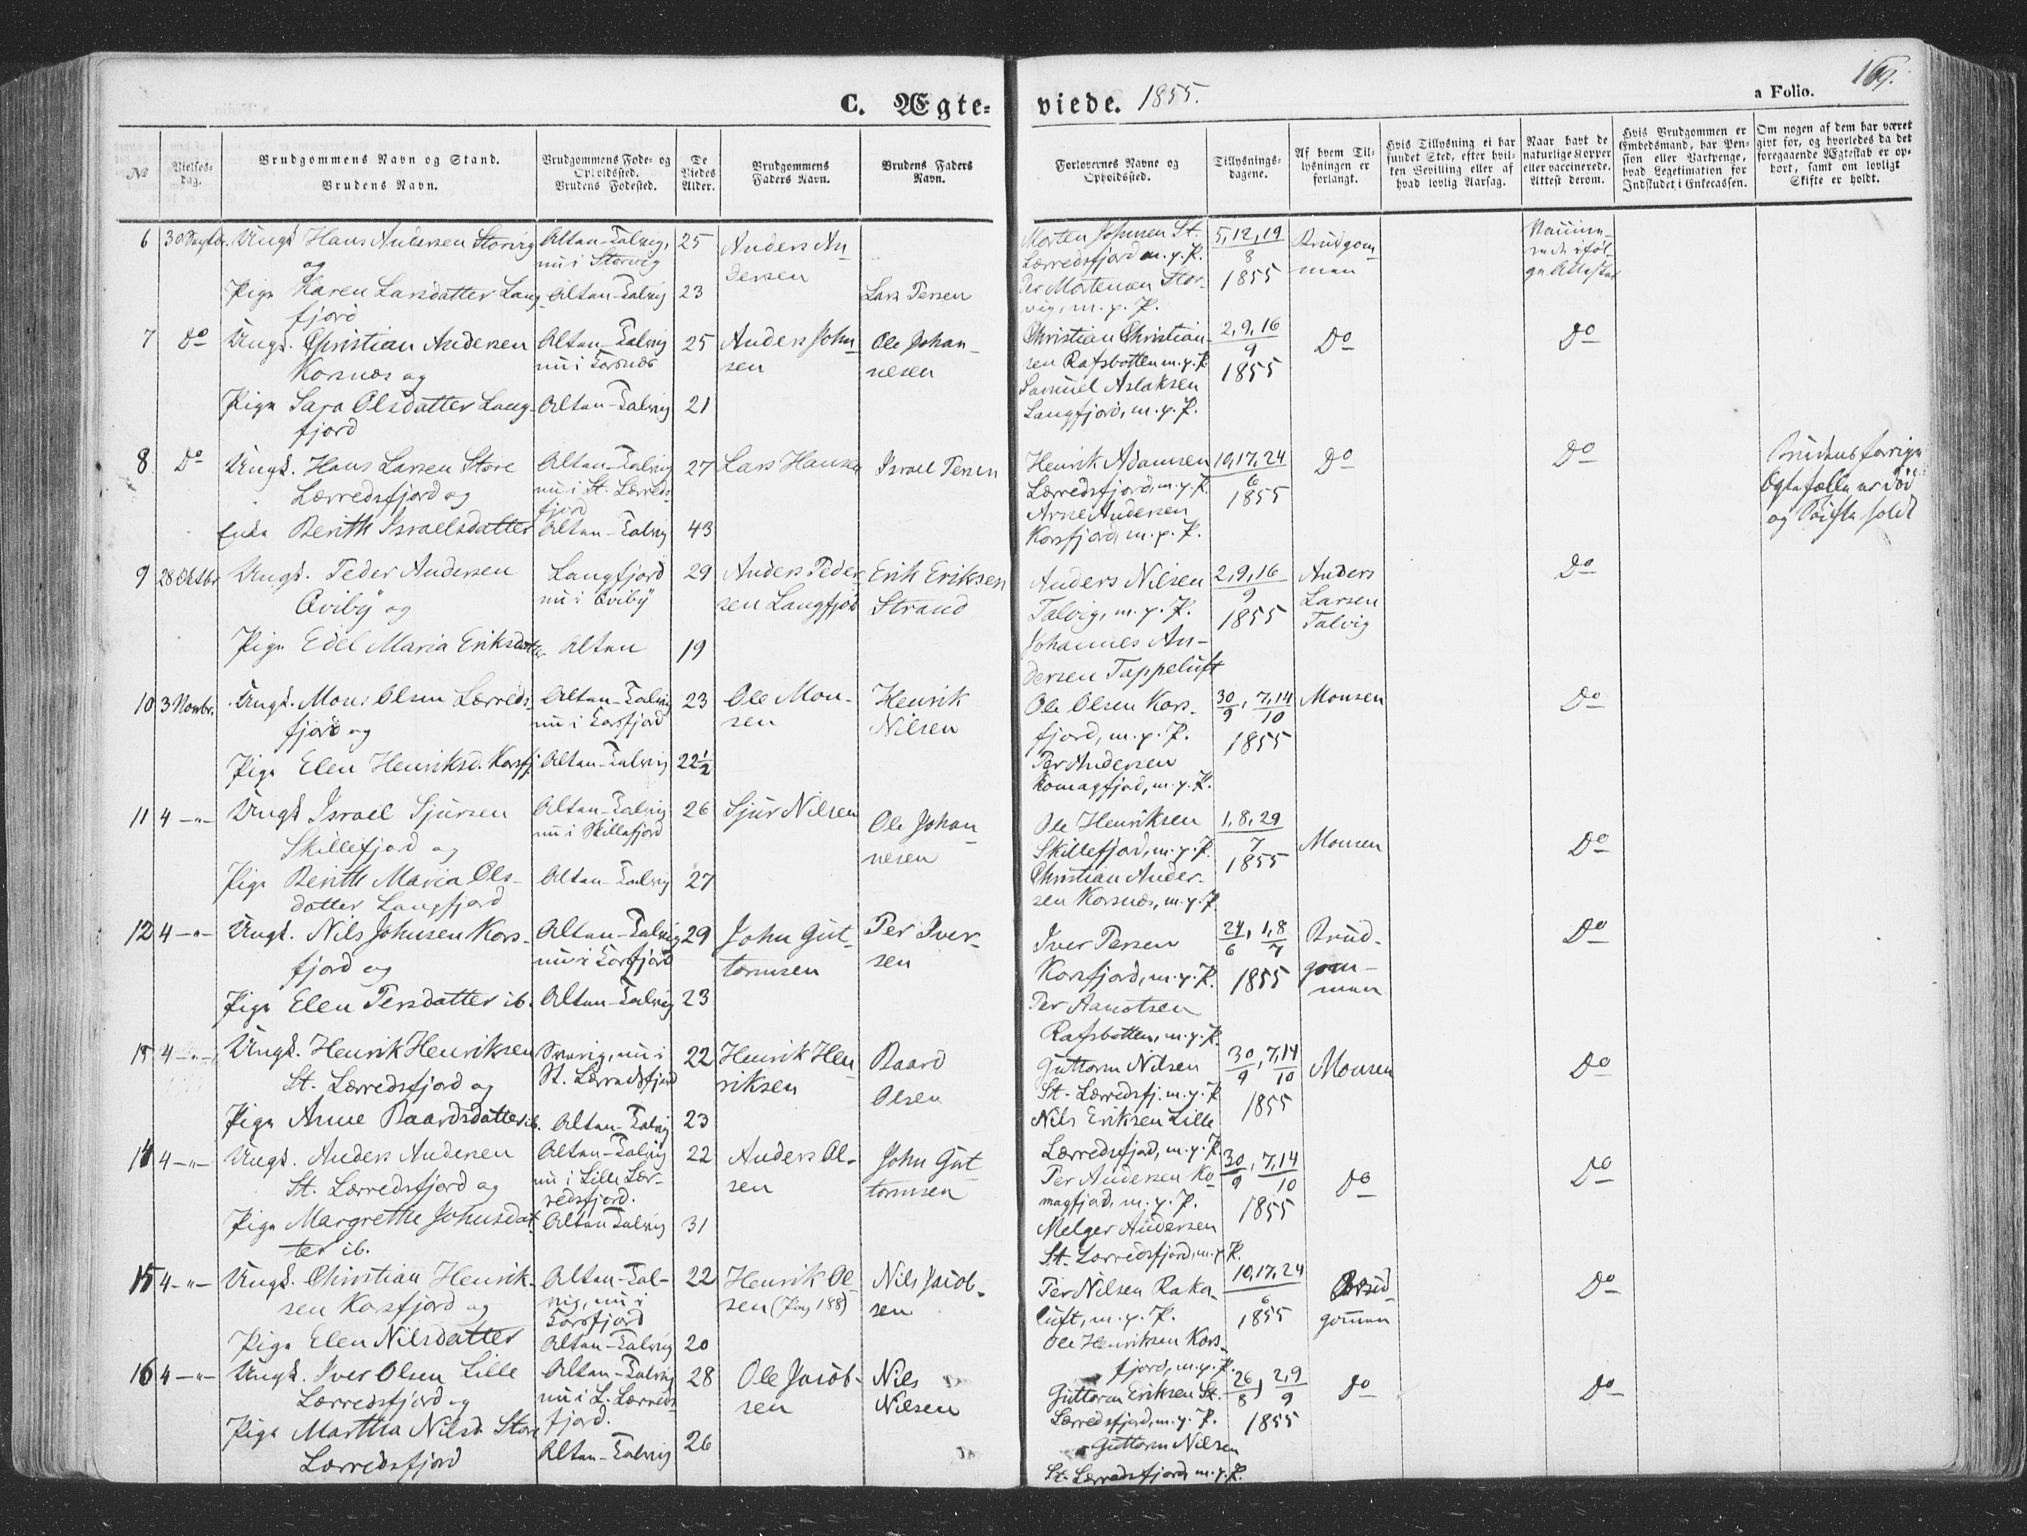 C. Ægteviede. 1855.
a Folio.
169.
No
Vielses-
dag.
Brudgommens Navn og Stand.
Brudens Navn.
Brudgommens Føde- og
Opholdssted.
Brudens Fødested.
De
Viedes
Alder.
Brudgommens
Faders Navn.
Brudens Faders
Navn.
Forlovernes Navne og
Opholdssted.
Tillysnings-
dagene.
Af hvem Til-
lysningen er
forlangt.
Hvis Tillysning ei har
fundet Sted, efter hvil-
ken Bevilling eller af
hvad lovlig Aarsag.
Naar havt de
naturlige Kopper
eller vaccinerede.
Attest derom.
Hvis Brudgommen er
Embedsmand, har Pen-
sion eller Vartpenge,
hvad Legitimation for
Indskudet i Enkecassen.
Om nogen af dem har været
givt for, og hvorledes da det
foregaaende Ægteskab er op-
hørt, samt om lovligt
Skifte er holdt.
6 30 Septbr. Ungk. Hans Andersen Storvig
og
Pige Karen Larsdatter Lang-
fjord
Alten-Talvig,
nu i Storvig
Alten-Talvig
25
23
Anders An-
dersen
Lars Persen
Morten Johnsen St.
Lærredsfjord m. p. P.
Per Mortensen Stor-
vig, m. p. P.
5, 12, 19
8
1855
Brudgom-
men
7 Do Ungk. Christian Andersen
Korsnæs og
Pige Sara Olsdatter Lang-
fjord
Alten-Talvig
nu i Korsnæs
Alten-Talvig
25
21
Anders John-
sen
Ole Johan-
nesen
Christian Christian-
sen Rafsbotten m. p. P.
Samuel Aslaksen
Langfjord, m. p. P.
2, 9, 16
9
1855
Do
Do
8 Do Ungk. Hans Larsen Store
Lærredsfjord og
Enke Berith Israelsdatter
Alten-Talvig
nu i St. Lærreds-
fjord
Alten-Talvig
27
43
Lars Hansen
Israel Persen
Henrik Adamsen
Lærredsfjord, m. p. P.
Arne Andersen
Korsfjord, m. p. P.
10, 17, 24
6
1855
Do
Do
Brudens forrige
Egtefælle er død
og Skifte holdt
9 28 Oktbr Ungk. Peder Andersen
Qviby og
Pige Edel Maria Eriksdatter
Langfjord
nu i Qviby
Alten
29
19
Anders Peder-
sen Langfjord
Erik Eriksen
Strand
Anders Nilsen
Talvig, m. p. P.
Johannes An-
dersen Tappeluft
2, 9, 16
9
1855
Anders
Larsen
Talvig
Do
10 3 Novbr. Ungk. Mons Olsen Lærreds-
fjord og
Pige Elen Henriksd. Korsfj.
Alten-Talvig
nu i Korsfjord
Alten-Talvig
23
22½
Ole Mon-
sen
Henrik
Nilsen
Ole Olsen Kors-
fjord, m. p. P.
Per Andersen
Komagfjord, m. p. P.
30/9, 7, 14/10
1855
Monsen
Do
11 4 -"- Ungk Israel Sjursen
Skillefjord og
Pige Berith Maria Ols-
datter Langfjord
Alten-Talvig
nu i Skillefjord
Alten-Talvig
26
27
Sjur Nilsen
Ole Johan-
nesen
Ole Henriksen
Skillefjord, m. p. P.
Christian Ander-
sen Korsnæs, m. p. P.
1, 8, 29
7
1855
Monsen
Do
12 4 -"- Ungk. Nils Johnsen Kors-
fjord og
Pige Elen Persdatter ib.
Alten-Talvig
nu i Korsfjord
Alten-Talvig
29
23
John Gut-
tormsen
Per Iver-
sen
Iver Persen
Korsfjord, m. p. P.
Per Aanotsen
Rafsbotten, m. p. P.
24/6, 1, 8/7
1855
Brud-
gom-
men
Do
13 4 -"- Ungk. Henrik Henriksen
St. Lærredsfjord og
Pige Anne Baardsdatter ib.
nu i
St. Lærredsfjord
Alten-Talvig
22
23
Henrik Hen-
riksen
Baard
Olsen
Guttorm Nilsen
St. Lærredsfj. m. p. P.
Nils Eriksen Lille
Lærredsfjord, m. p. P.
30/9, 7, 14/10
1855
Monsen
Do
14 4 -"- Ungk. Anders Andersen
St. Lærredsfjord og
Pige Margrethe Johnsdat-
ter ib.
Alten-Talvig
nu i Lille Lær-
redsfjord.
Alten Talvig
22
31
Anders Ol-
sen
John Gut-
tormsen
Per Andersen Ko-
magfjord, m. p. P.
Melger Andersen
St. Lærredsfjord, m. p. P.
30/9, 7, 14/10
1855
Do
Do
15 4 -"- Ungk. Christian Henrik-
sen Korsfjord og
Pige Elen Nilsdatter
Alten-Tal-
vig, nu i
Korsfjord
Alten-Talvig
22
20
Henrik Ol-
sen (Pag 188)
Nils Jacob-
sen
Per Nilsen Rake-
luft, m. p. P.
Ole Henriksen Kors-
fjord, m. p. P.
10, 17, 24
6
1855
Brud-
gommen
Do
16 4 -"- Ungk. Iver Olsen Lille
Lærredsfjord og
Pige Martha Nilsd. Store
Lærredsfjord
Alten-Talvig
nu i L. Lærreds-
fjord.
Alten-Talvig
28
26
Ole Jacob-
sen
Nils
Nilsen
Guttorm Eriksen St.
Lærredsfjord, m. p. P.
Guttorm Nilsen
St. Lærredsfjord, m. p. P.
26/8, 2, 9/9
1855
Do
Do